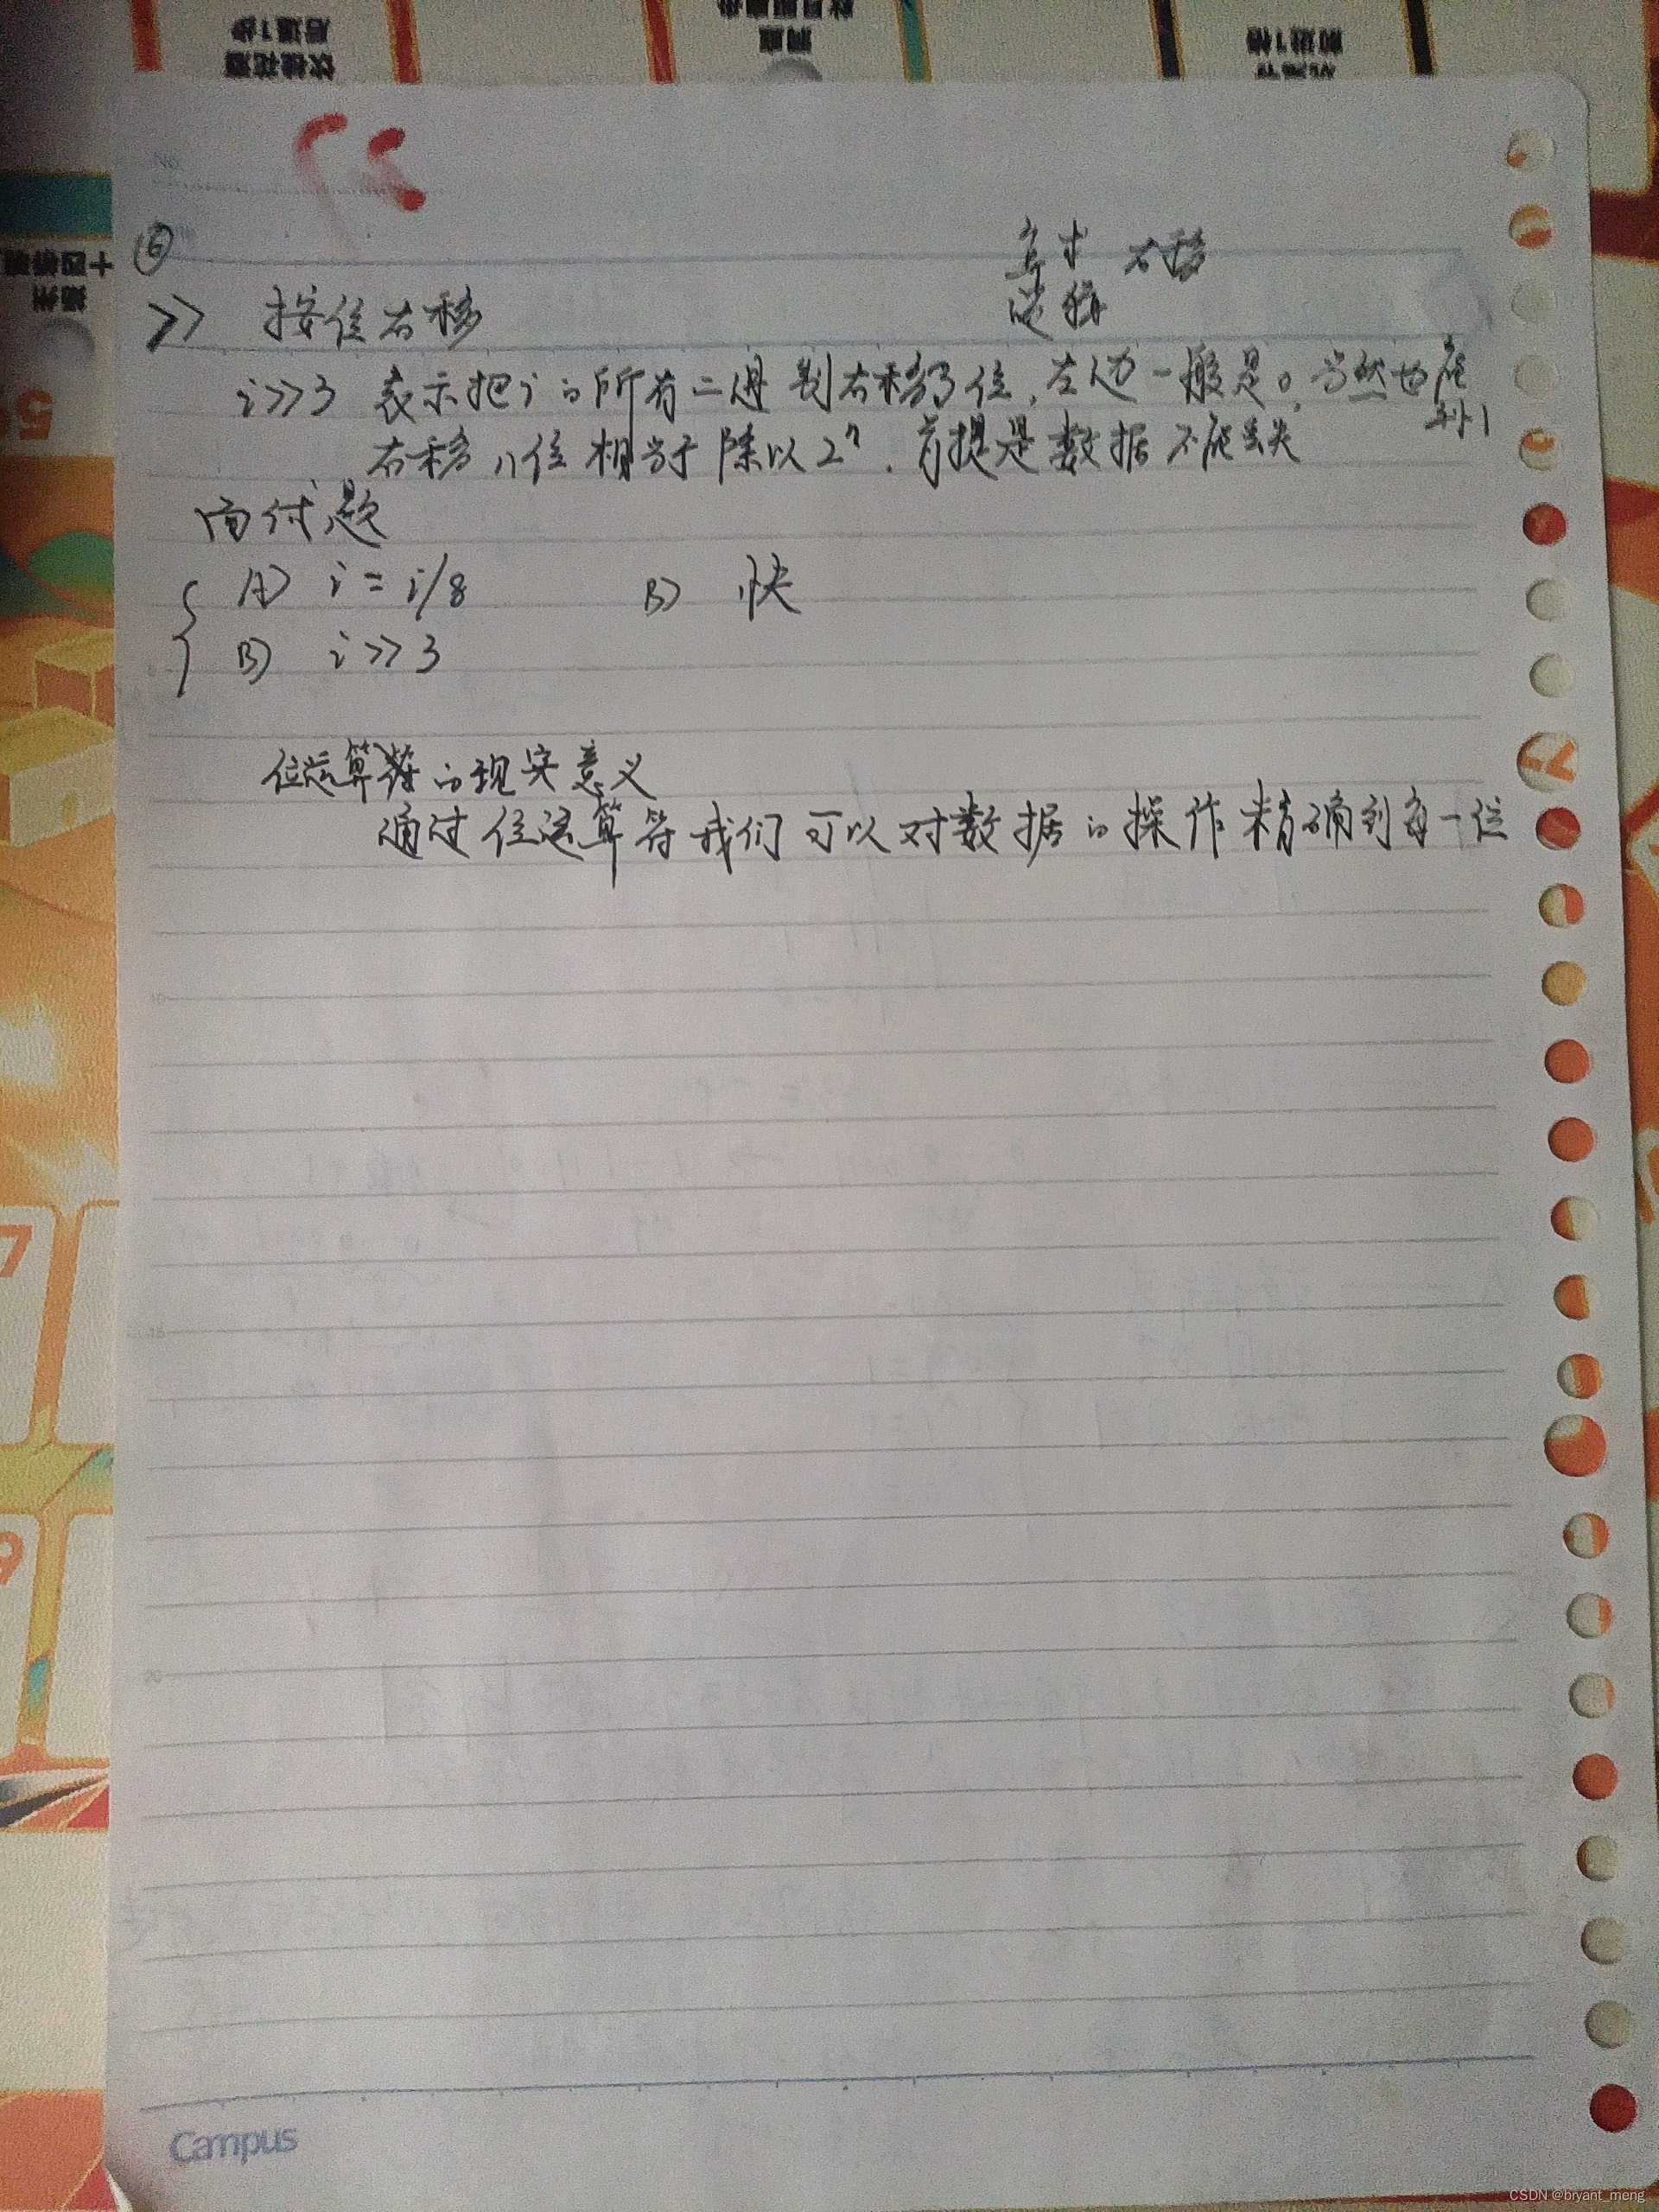 ⑥
算术 右移
逻辑
>> 按位右移
i>>3 表示把i的所有二进制右移3位,左边一般是0,当然也可能补1
右移n位相当于除以2ⁿ,前提是数据不能丢失
面试题
A) i = i/8 B) 快
B) i >> 3
位运算符的现实意义
通过位运算符我们可以对数据的操作精确到每一位
Campus
CSDN @bryant_meng